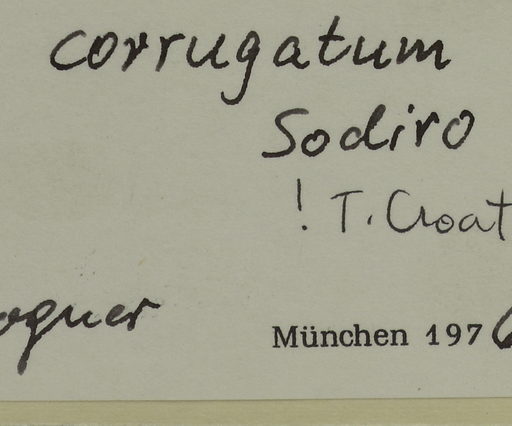 corrugatum
Sodiro
! T. Croat
ogner München 1976